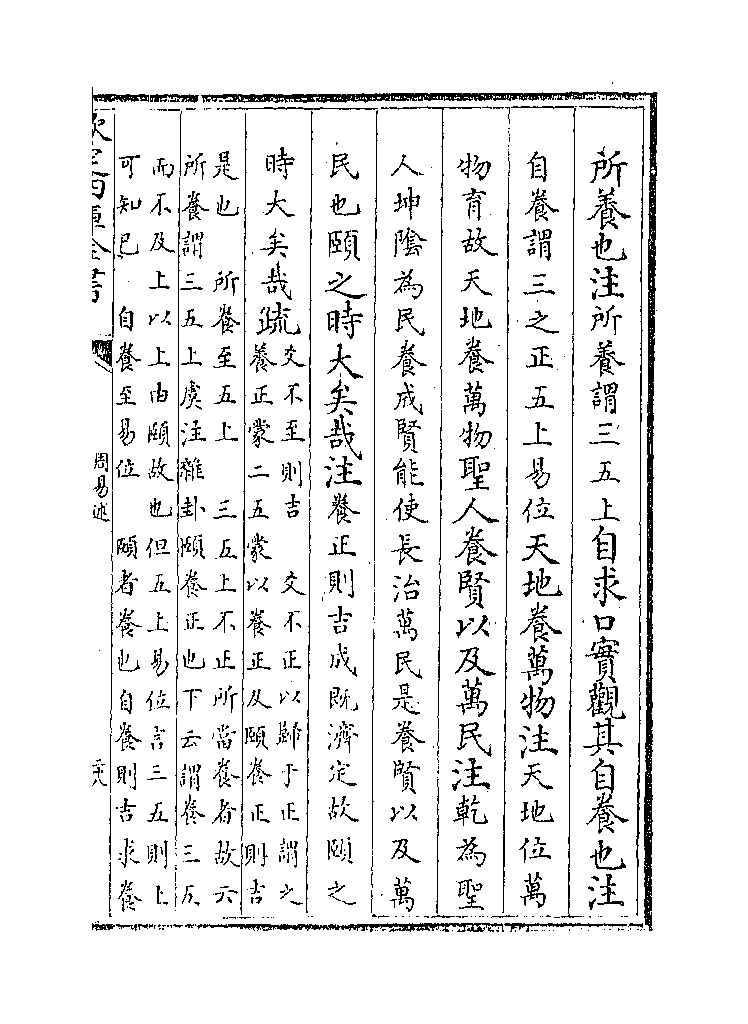 所養也注所養謂三五上自求口實觀其自養也注
自養謂三之正五上易位天地養萬物注天地位萬
物育故天地養萬物聖人養賢以及萬民注乾為聖
人坤陰為民養成賢能使長治萬民是養賢以及萬
民也頤之時大矣哉注養正則吉成既濟定故頤之
時大矣哉疏
爻不至則吉 爻不正以歸于正謂之
養正蒙二五蒙以養正从頤養正則吉
是也 所養至五上 三五上不正所當養者故六
所養謂三五上虞注雜卦頤養正也下云謂養三五
而不及上以上由頤故也但五上易位言三五則上
可知已 自養至易位 頤者養也自養則吉求養
欽定四庫全書
周易述
二十八